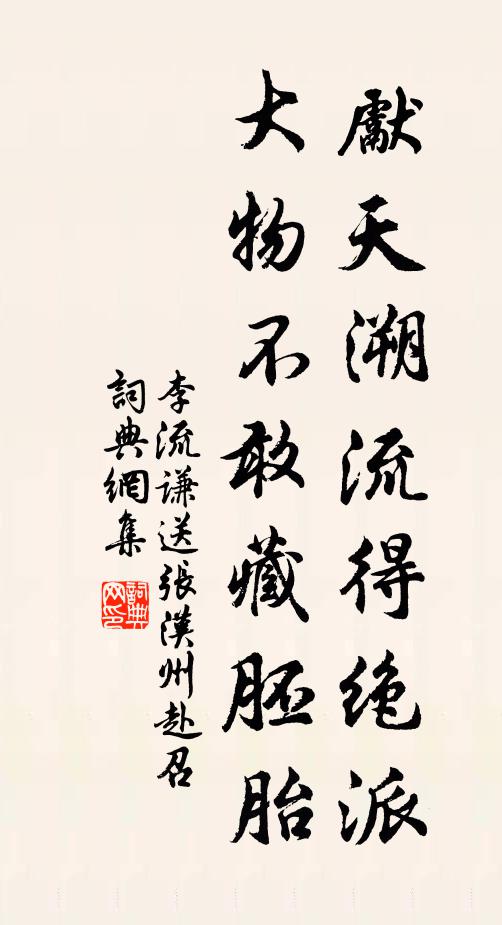 獻天溯流得絶派
大物不敢藏胚胎
李流謙送張漢州赴召
詞典網集
詞典网印